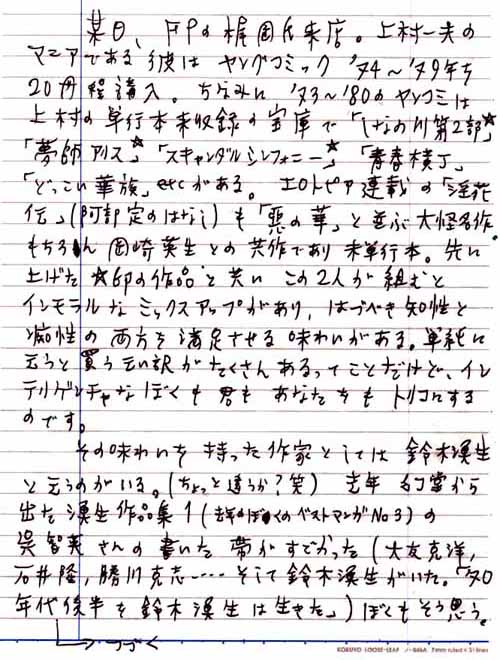 某日、FPの梶岡氏来店。上村一夫の
マニアである彼はヤングコミック '74〜'79年を
20冊程購入。ちなみに '73〜'80のヤンコミは
上村の単行本未収録の宝庫で「しなの川第2部」☆
「夢師アリス」☆「スキャンダルシンフォニー」☆「青春横丁」
「どっこい華族」etcがある。エロトピア連載の「淫花
伝」(阿部定のはなし)も「悪の華」と並ぶ大怪名作
もちろん岡崎英生との共作であり未単行本。先に
上げた☆印の作品と共に この2人が組むと
インモラルなミックスアップがあり、はづべき知性と
痴性の両方を満足させる味わいがある。単純に
云うと買う云い訳がたくさんあるってことだけど、イン
テリゲンチャなぼくも君もあなたをもトリコにする
のです。
その味わいを持った作家としては 鈴木漠生
と云うのがいる。(ちょっと違うか?笑) 去年 幻堂から
出た漠生作品集1(去年のぼくのベストマンガNo3)の
呉智英さんの書いた帯がすでかった(大友克洋,
石井隆,勝川克志……そして鈴木漠生がいた。「70
年代後半を鈴木漠生は生きた。」)ぼくもそう思う。
→つづく
KOKUYO LOOSE-LEAF ノ-836A 7mm ruled × 31 lines